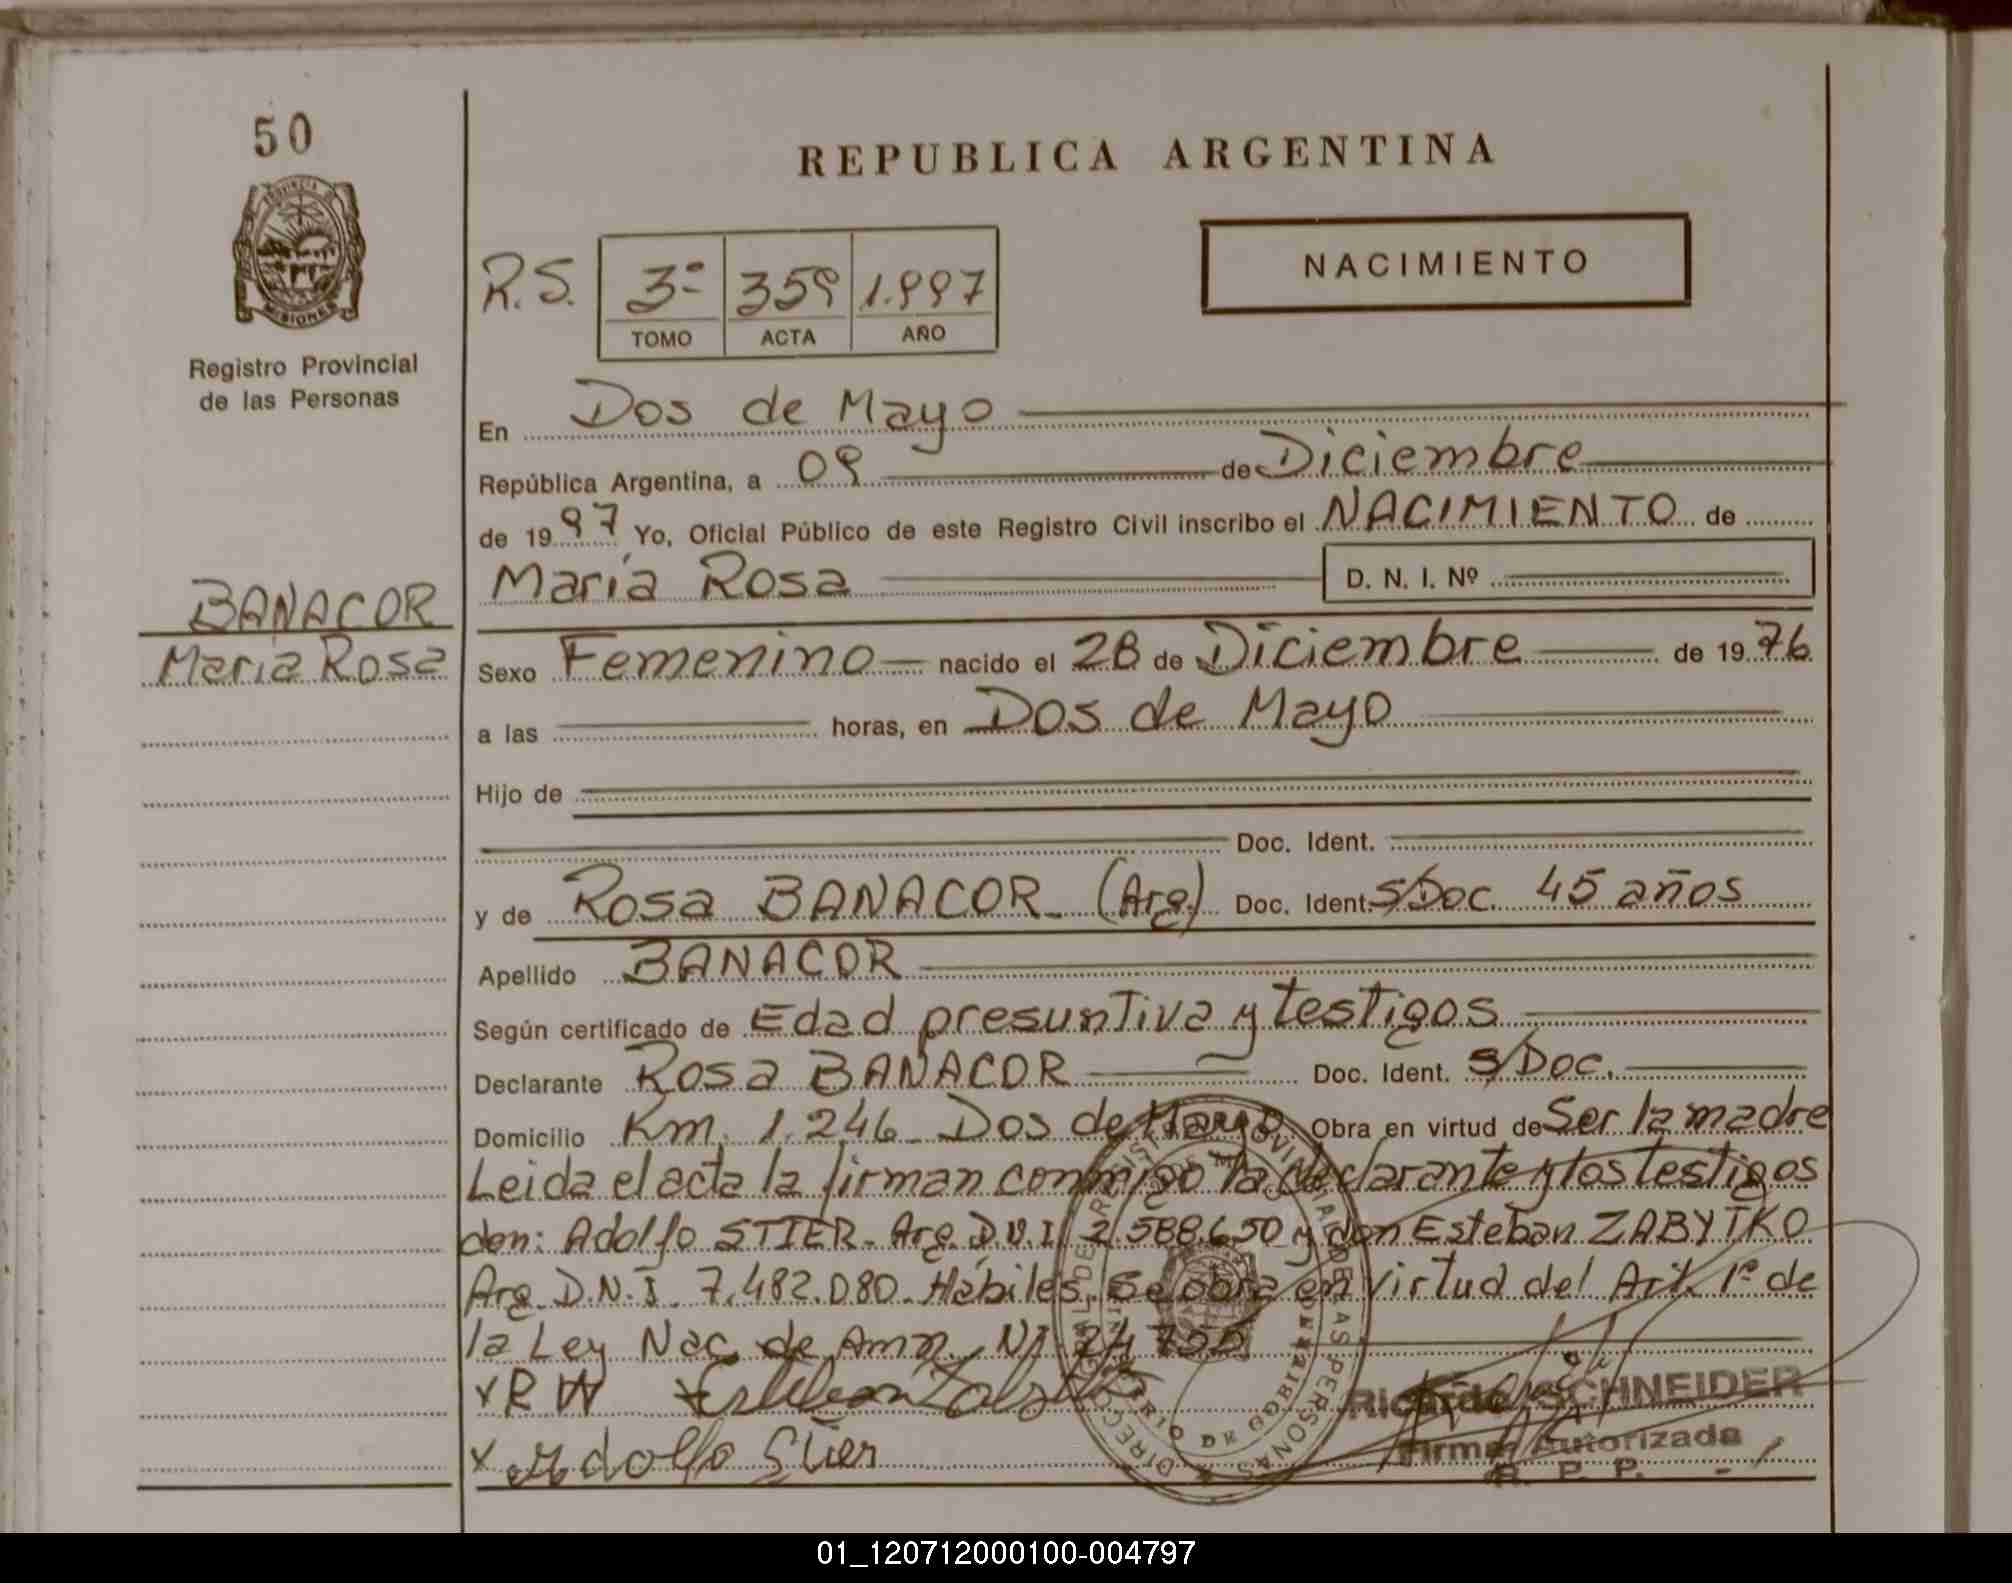 50
REPUBLICA ARGENTINA
PROVINCIA DE
MISIONES
Registro Provincial
de las Personas
R.S. 3º 359 1.997
TOMO ACTA AÑO
NACIMIENTO
En Dos de Mayo
República Argentina, a 09 de Diciembre
de 1997 Yo, Oficial Público de este Registro Civil inscribo el NACIMIENTO de
María Rosa D. N. I. Nº
BANACOR
María Rosa
Sexo Femenino nacido el 28 de Diciembre de 1976
a las horas, en Dos de Mayo
Hijo de
Doc. Ident.
y de Rosa BANACOR (Arg.) Doc. Ident. S/Doc. 45 años
Apellido BANACOR
Según certificado de Edad presuntiva y testigos
Declarante Rosa BANACOR Doc. Ident. S/Doc.
Domicilio Km. 1.246 Dos de Mayo Obra en virtud de Ser la madre
Leida el acta la firman conmigo la declarante y los testigos
don: Adolfo STIER. Arg. D.N.I. 2.588.650 y don Esteban ZABYTKO
Arg. D.N.I. 7.482.080. Hábiles. Se obra en virtud del Art. 1º de
la Ley Nac. de Amn. Nº
x R W
x Adolfo Stier
Ricardo SCHNEIDER
Firma Autorizada
R. P. P.
01_120712000100-004797